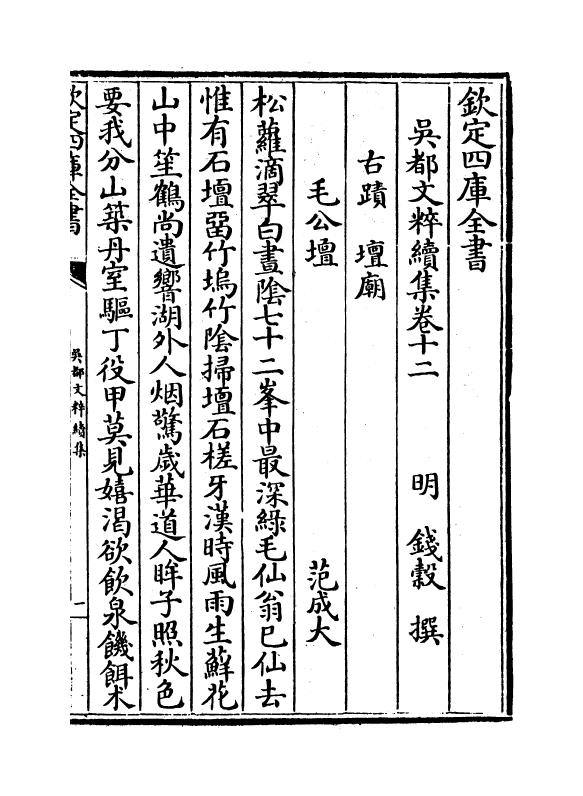 欽定四庫全書
吳都文粹續集卷十二　明　錢穀　撰
古蹟　壇廟
毛公壇　范成大
松蘿滴翠白晝陰七十二峯中最深綠毛仙翁已仙去
惟有石壇留竹塢竹陰掃壇石槎牙漢時風雨生蘚花
山中笙鶴尚遺響湖外人烟驚歲華道人眸子照秋色
要我分山築丹室驅丁役甲莫見嬉渴欲飲泉饑餌朮
欽定四庫全書
吳都文粹續集
一